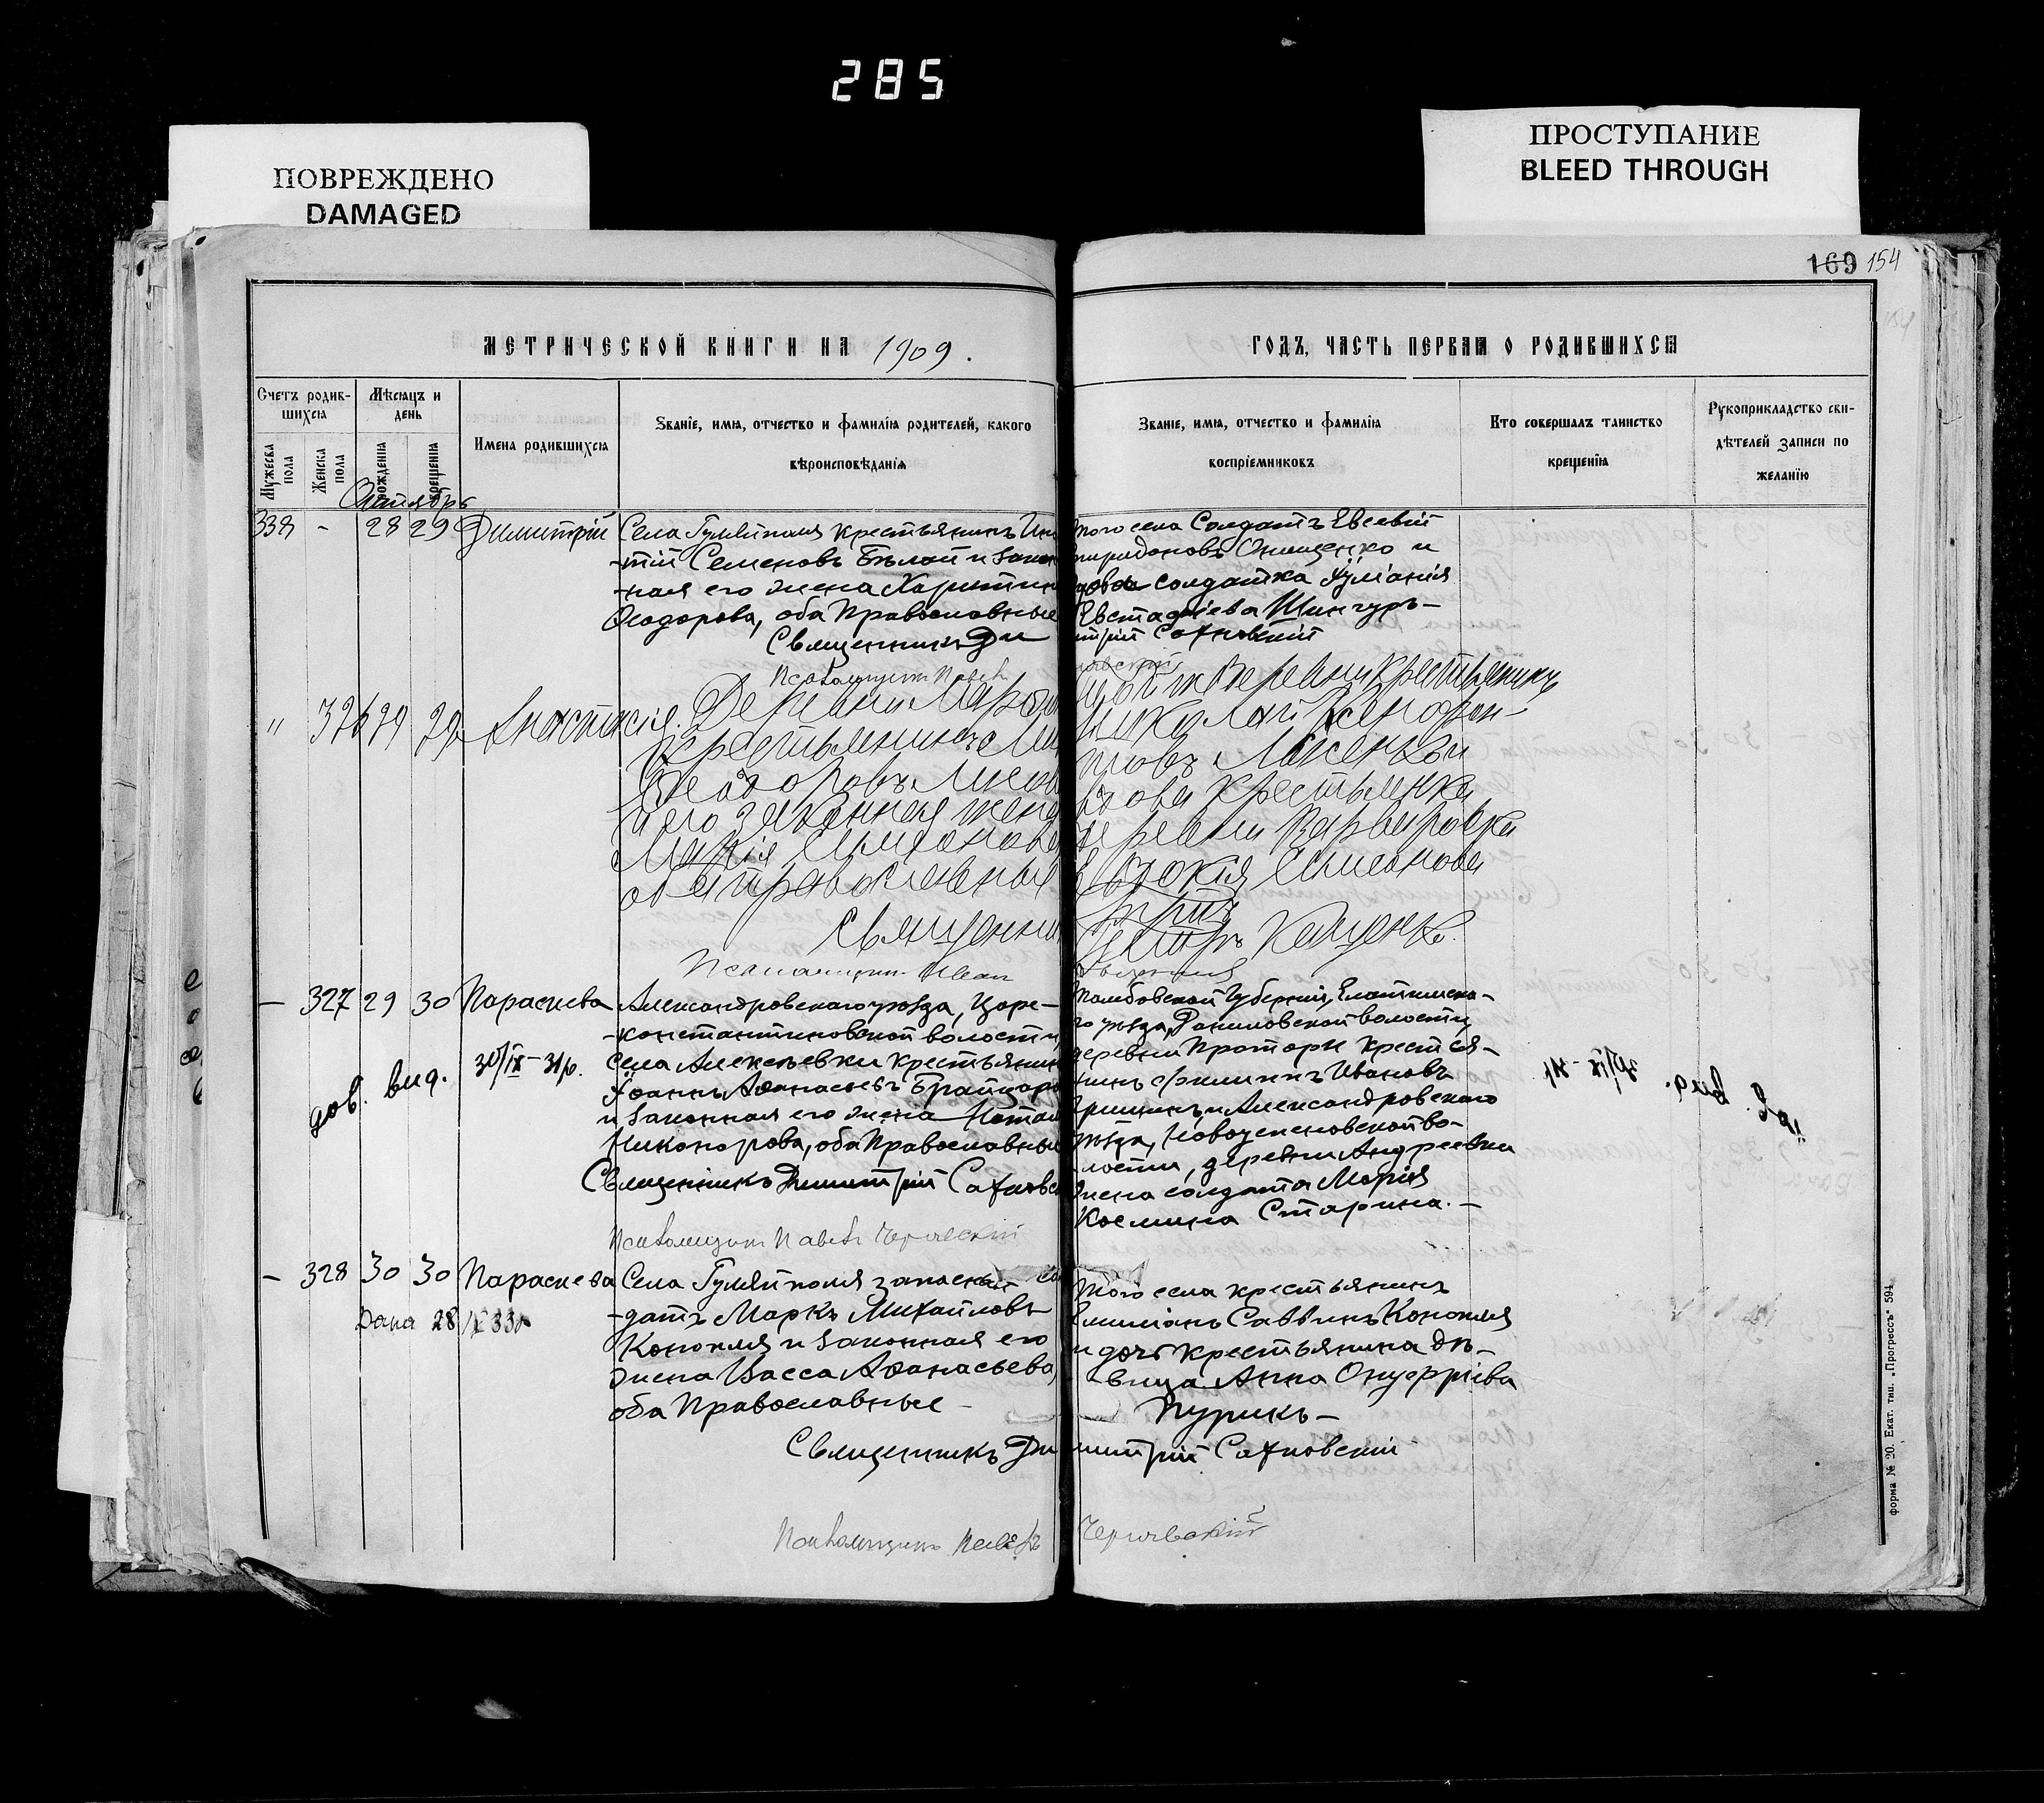 285
ПОВРЕЖДЕНО
DAMAGED
ПРОСТУПАНИЕ
BLEED THROUGH
169 154
МЕТРИЧЕСКОЙ КНИГИ НА 1909.
ГОДЪ, ЧАСТЬ ПЕРВАЯ О РОДИВШИХСЯ
Счетъ родившихся
Мужеска пола
Женска пола
Мѣсяцъ и день
рожденія
крещенія
Имена родившихся
Званіе, имя, отчество и фамилія родителей, какого
вѣроисповѣданія
Званіе, имя, отчество и фамилія
воспріемниковъ
Кто совершалъ таинство
крещенія
Рукоприкладство сви-
дѣтелей записи по
желанію
Октябрь
338 - 28 29 Димитрій
Села Гуляйполя крестьянинъ
-тій Семеновъ Бѣлай и закон
-ная его жена Харитин
Ѳеодорова, оба Православные
Священникъ Ди
того села Солдатъ Евсевій
Спиридоновъ Онищенко и
вдова солдатка Іуліанія
Евстафіева Шингуръ-
митрій Сахновскій
Псаломщикъ Павелъ
" 326 29 29 Анастасія.
Деревни
Крестьянинъ
Ѳеодоровъ
и его законная жена
Марія Симеонова
оба православные
Священни
той же деревни крестьянинъ
Николай Ксенофон-
товъ
вдова крестьянка
деревни Варваровки
Евдокія Симеонова
Петръ Кащенко.
Псаломщикъ Иван
- 327 29 30 Параскева
дов. выд. 30/IX-31г.
Александровскаго уѣзда, Царе-
-константиновской волости,
села Алексѣевки крестьянин
Іоаннъ Аѳанасьевъ
и законная его жена Натал
Никонорова, оба Православные
Священникъ Димитрій Сахновск
Тамбовской Губерніи, Елатомска-
го уѣзда, Даниловской волости,
деревни крестья-
нинъ Филиппъ Ивановъ
Гришинъ и Александровскаго
уѣзда, Новоуспеновской во-
лости, деревни Андреевки
жена солдата Марія
Космина Старина.-
дов. выд. 30/IX-31
Псаломщикъ Павелъ Чернявскій
- 328 30 30 Параскева
Дана 28/X 33г
Села Гуляйполя запасный сол
-датъ Маркъ Михайловъ
Конопля и законная его
жена Васса Аѳанасьева,
оба Православные -
Священникъ Ди
того села крестьянинъ
Емиліанъ Саввинъ Конопля
и дочь крестьянина дѣ-
-вица Анна Онуфріева
Пурикъ-
митрій Сахновскій
Псаломщикъ Павелъ Чернявскій
форма № 20. Екат. тип. „Прогрессъ" 594